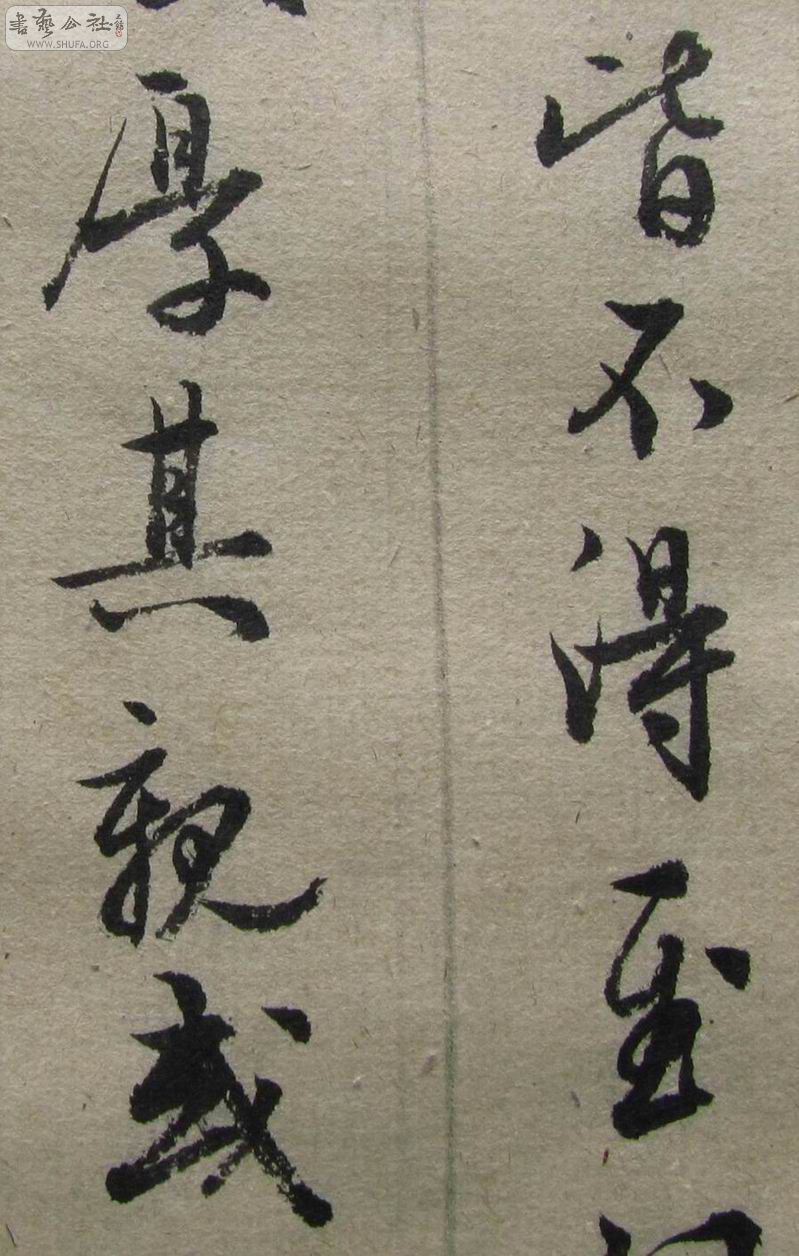 書藝公社
WWW.SHUFA.ORG
皆不得至
厚其親或